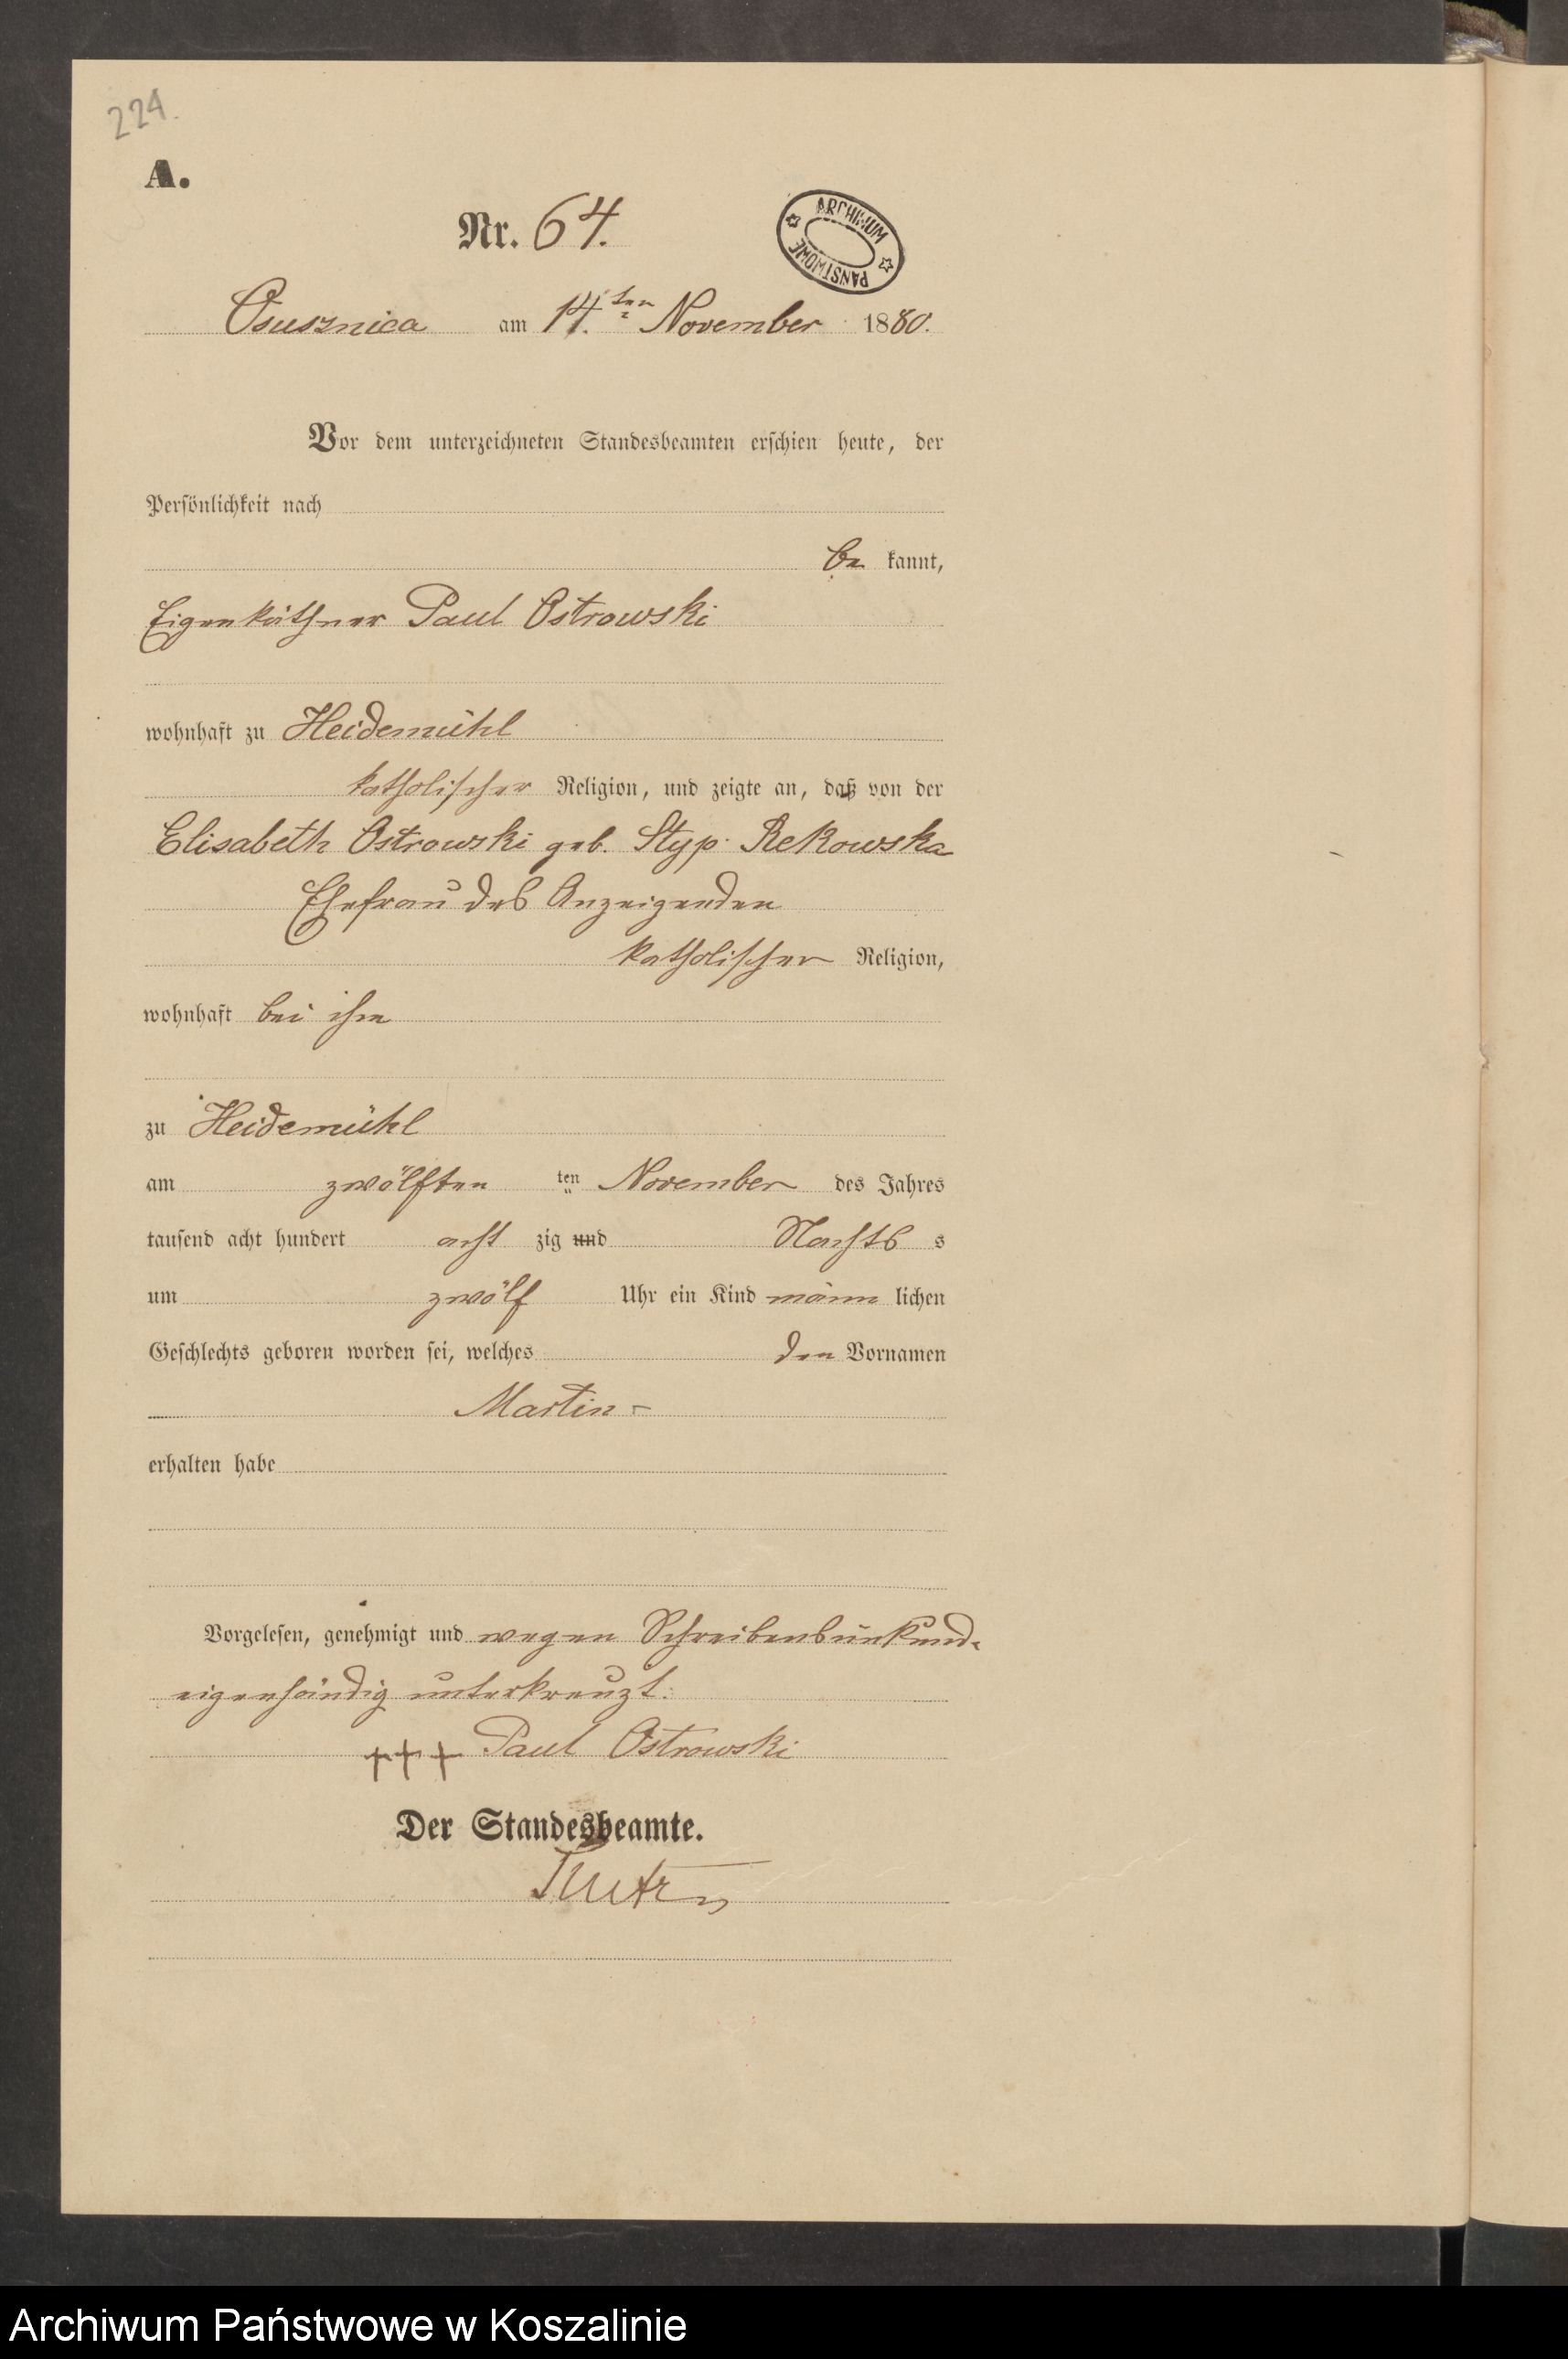 224.
A.
Nr. 64.
ARCHIWUM PAŃSTWOWE
Osusznica am 14.ten November 1880.
Vor dem unterzeichneten Standesbeamten erschien heute, der
Persönlichkeit nach
be kannt,
Eigenkäthner Paul Ostrowski
wohnhaft zu Heidemühl
katholischer Religion, und zeigte an, daß von der
Elisabeth Ostrowski geb. Styp. Rekowska
Ehefrau des Anzeigenden
katholischer Religion,
wohnhaft bei ihm
zu Heidemühl
am zwölften ten November des Jahres
tausend acht hundert acht zig und Nachts s
um zwölf Uhr ein Kind männ lichen
Geschlechts geboren worden sei, welches den Vornamen
Martin -
erhalten habe
Vorgelesen, genehmigt und wegen Schreibensunkund.
eigenhändig unterkreuzt.
+++ Paul Ostrowski
Der Standesbeamte.
Archiwum Państwowe w Koszalinie